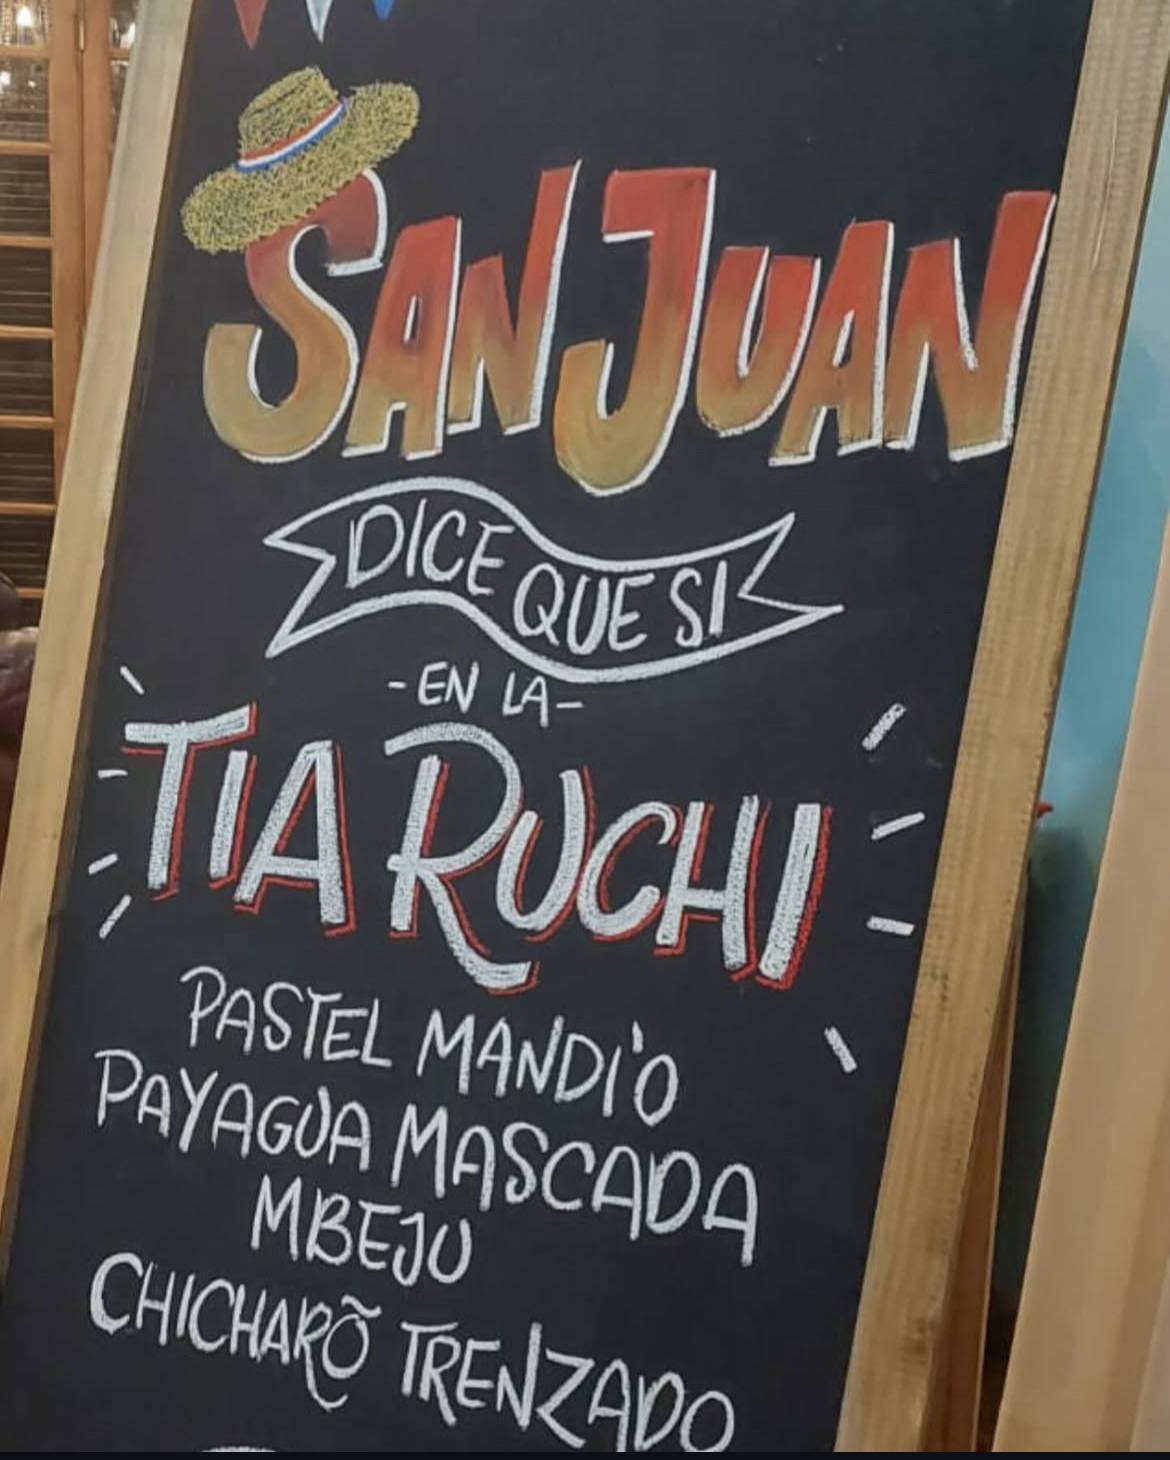 SAN JUAN
DICE QUE SI
- EN LA -
TIA RUCHI
PASTEL MANDI'O
PAYAGUA MASCADA
MBEJU
CHICHARÕ TRENZADO